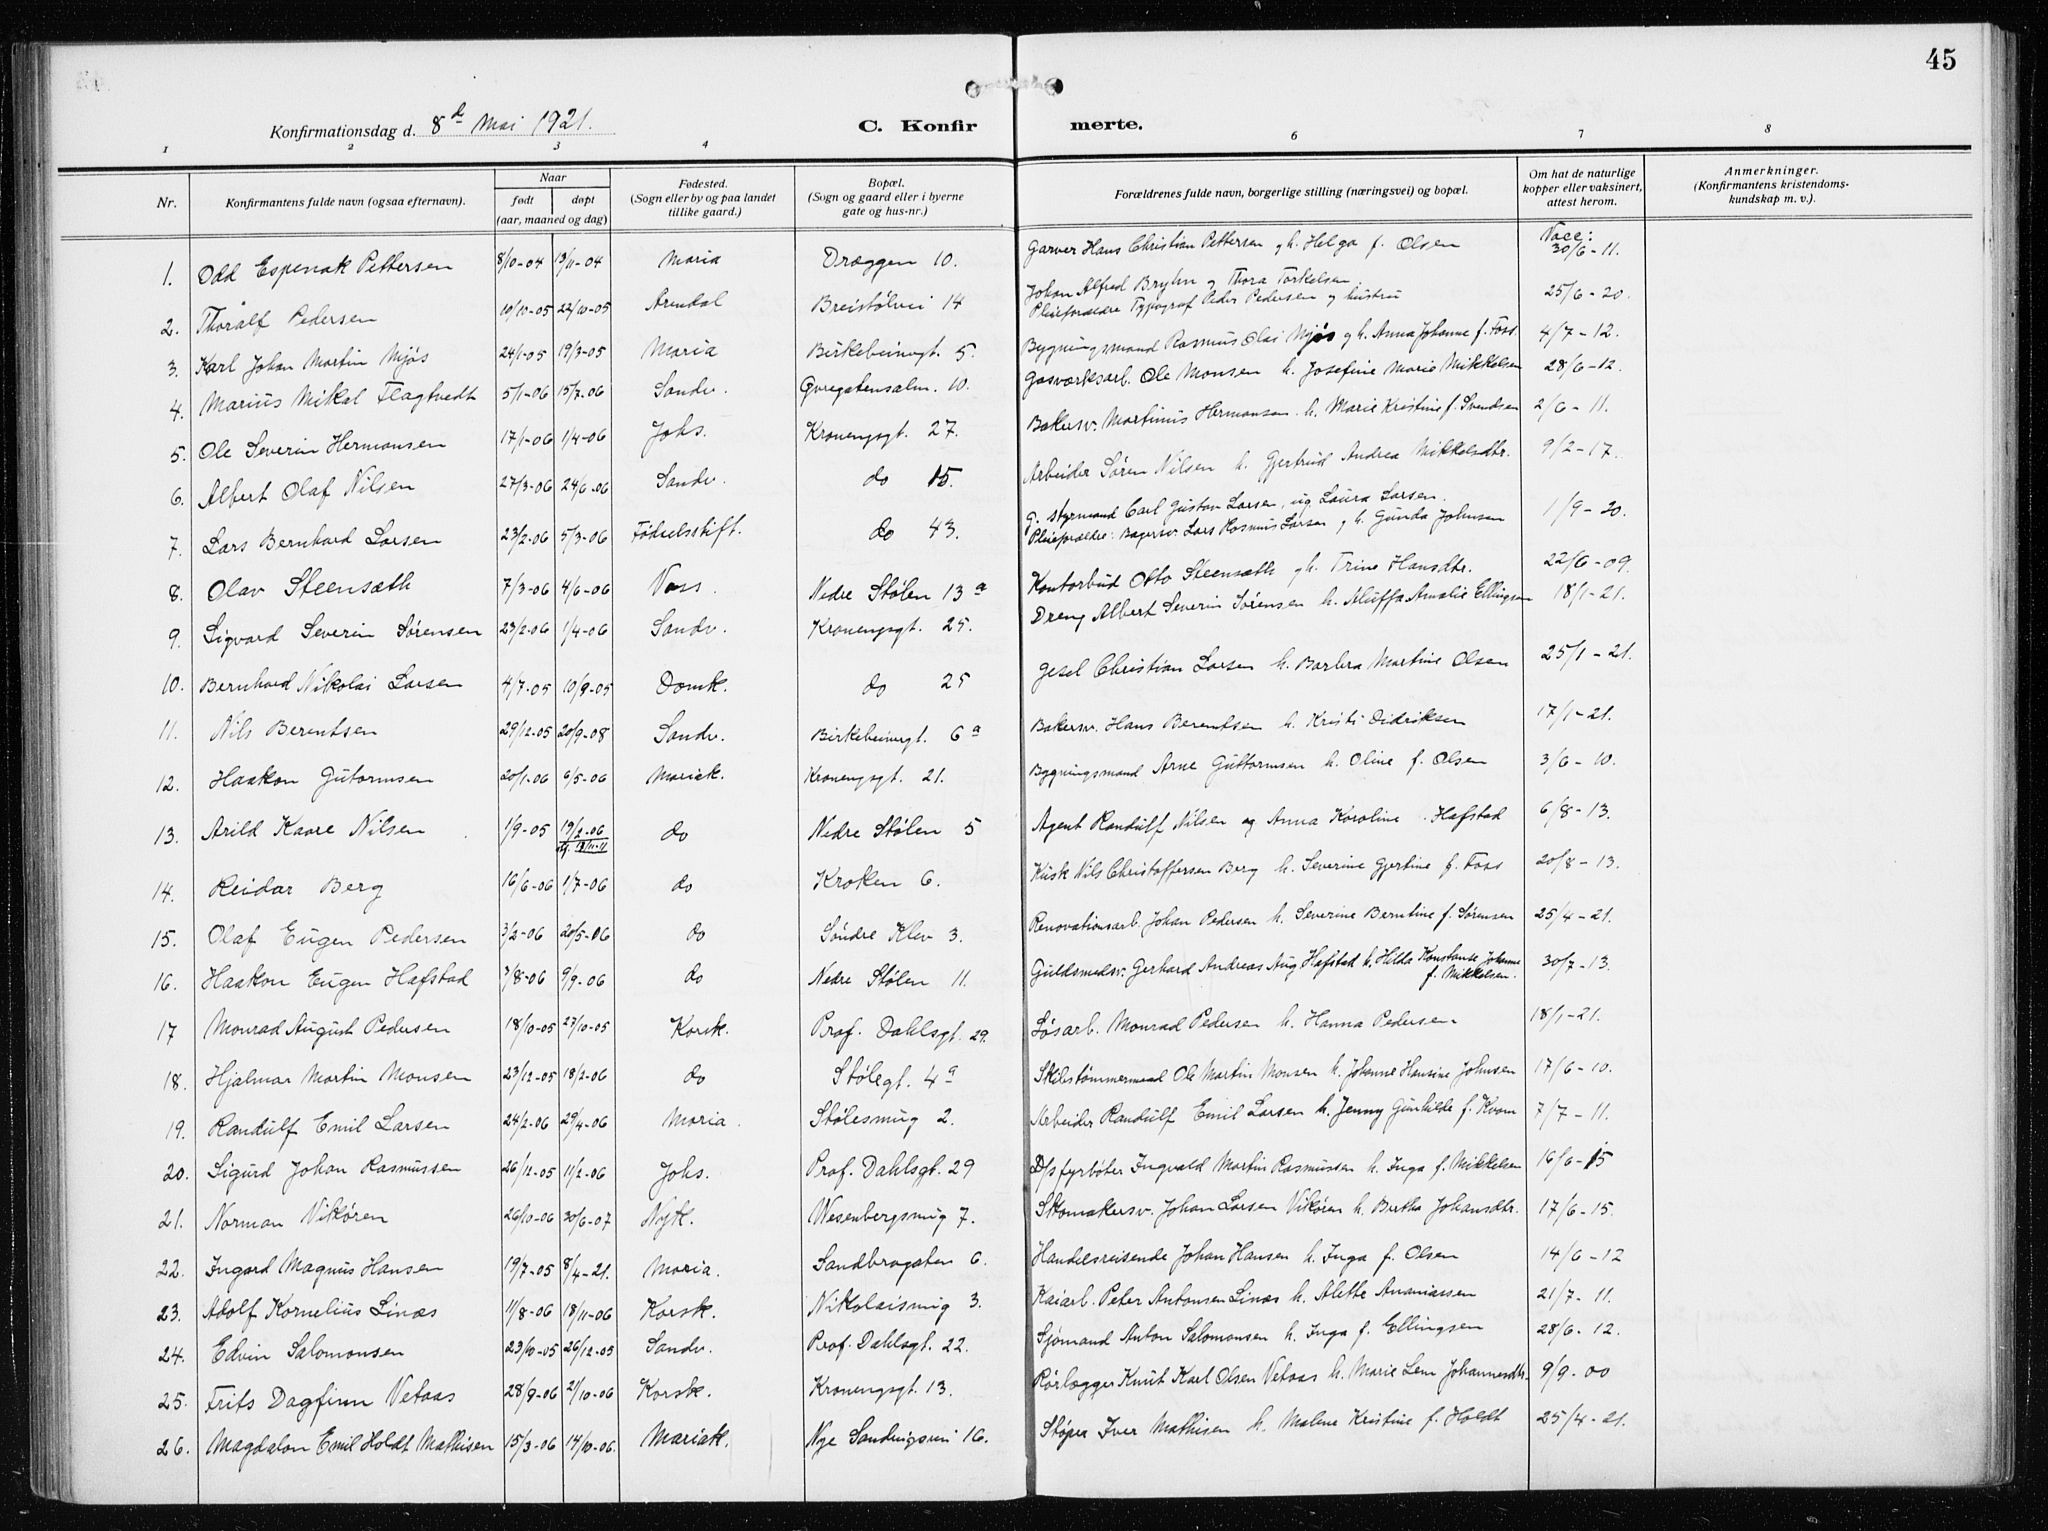 45
Konfirmationsdag d. 8de Mai 1921. C. Konfirmerte.
1 2 3 4 5 6 7 8
Nr. Konfirmantens fulde navn (ogsaa efternavn). Naar født døpt (aar, maaned og dag) Fødested. (Sogn eller by og paa landet tillike gaard.) Bopæl. (Sogn og gaard eller i byerne gate og hus-nr.) Forældrenes fulde navn, borgerlige stilling (næringsvei) og bopæl. Om hat de naturlige kopper eller vaksinert, attest herom. Anmerkninger. (Konfirmantens kristendomskundskap m. v.).
1. Odd Espenak Pettersen 8/10-04 13/11-04 Maria Dræggen 10. Garver Hans Christian Pettersen og h. Helga f. Olsen Vacc: 30/6-11.
2. Thoralf Pedersen 10/10-05 22/10-05 Arendal Breistølvei 14 Johan Alfred Bryhn og Thora Torkelsen
Pleieforældre Typograf Peder Pedersen og hustru 25/6-20.
3. Karl Johan Martin Mjøs 24/1-05 19/3-05 Maria Birkebeinergt. 5. Bygningsmand Rasmus Olai Mjøs og h. Anna Johanne f. Foss. 4/7-12.
4. Marius Mikal Flagtvedt 5/1-06 15/7-06 Sandv. Øvregatensalm. 10. Gasværksarb. Ole Monsen h. Josefine Marie Mikkelsen 28/6-12.
5. Ole Severin Hermansen 17/1-06 1/4-06 Johs. Kronengsgt. 27. Bakersv. Martinus Hermansen h. Marie Kristine f. Svendsen 2/6-11.
6. Albert Olaf Nilsen 27/3-06 24/6-06 Sandv. do 15. Arbeider Søren Nilsen h. Gjertrud Andrea Mikkelsdtr. 9/2-17.
7. Lars Bernhard Larsen 23/2-06 5/3-06 Fødselsstift. do 43. G. styrmand Carl Gustav Larsen, ug. Laura Larsen.
Pleieforældre: Bagersv. Lars Rasmus Larsen og h. Gunda Johnsen 1/9-20.
8. Olav Steensæth 7/3-06 4/6-06 Voss. Nedre Stølen 13 a Kontorbud Otto Steensæth og h. Trine Hansdtr. 22/6-09.
9. Sigvard Severin Sørensen 23/2-06 1/4-06 Sandv. Kronengsgt. 25. Dreng Albert Severin Sørensen h. Amalie Ellingsen 18/1-21.
10. Bernhard Nikolai Larsen 4/7-05 10/9-05 Domk. do 25 Gesel Christian Larsen h. Barbra Martine Olsen 25/1-21.
11. Nils Berentsen 29/12-05 20/9-08 Sandv. Birkebeinergt. 6 a Bakersv. Hans Berentsen h. Kristi Didriksen 17/1-21.
12. Haakon Gutormsen 20/1-06 6/5-06 Mariek. Kronengsgt. 21. Bygningsmand Arne Guttormsen h. Oline f. Olsen 3/6-10.
13. Arild Kaare Nilsen 1/9-05 19/2-06 do Nedre Stølen 5 Agent Randulf Nilsen og Anna Karoline Hafstad 6/8-13.
14. Reidar Berg 16/6-06 1/7-06 do Kroken 6. Kusk Nils Christoffersen Berg h. Severine Gjertine f. Foss 20/8-13.
15. Olaf Eugen Pedersen 3/2-06 20/5-06 do Søndre Klev 3. Renovationsarb. Johan Pedersen h. Severine Berntine f. Sørensen 25/4-21.
16. Haakon Eugen Hafstad 7/8-06 9/9-06 do Nedre Stølen 11. Guldsmedsv. Gerhard Andreas Aug. Hafstad h. Hilda Konstanse Johanne
f. Mikkelsen. 30/7-13.
17 Monrad August Pedersen 18/10-05 27/10-05 Korsk. Prof. Dahlsgt. 29. Løsarb. Monrad Pedersen h. Hanna Pedersen 18/1-21.
18. Hjalmar Martin Monsen 23/12-05 18/2-06 do Stølegt. 4 a Skibstømmermand Ole Martin Monsen h. Johanne Hansine Johnsen 17/6-10.
19. Randulf Emil Larsen 24/2-06 29/4-06 Maria. Stølesmug 2. Arbeider Randulf Emil Larsen h. Jenny Gunhilde f. Kvam 7/7-11.
20. Sigurd Johan Rasmussen 26/12-05 11/2-06 Johs. Prof. Dahlsgt. 29 D/s fyrbøter Ingvald Martin Rasmussen h. Inga f. Mikkelsen 16/6-15
21. Norman Vikøren 26/10-06 30/6-07 Nyk. Wesenbergsmug 7. Skomakersv. Johan Larsen Vikøren h. Bertha Johansdtr. 17/6-15.
22. Ingard Magnus Hansen 19/7-05 8/4-21. Maria. Sandbrogaten 6. Handelsreisende Johan Hansen h. Inga f. Olsen 14/6-12
23. Adolf Kornelius Linæs 11/8-06 18/11-06 Korsk. Nikolaismug 3. Kaiarb. Peter Antonsen Linæs h. Alette Ananiassen 21/7-11.
24. Edvin Salomonsen 23/10-05 26/12-05 Sandv. Prof. Dahlsgt. 22. Sjømand Anton Salomonsen h. Inga f. Ellingsen 28/6-12.
25. Frits Dagfinn Vetaas 28/9-06 21/10-06 Korsk. Kronengsgt. 13. Rørlægger Knut Karl Olsen Vetaas h. Marie Lem Johannesdtr. 9/9-00
26. Magdalon Emil Holdt Mathisen 15/3-06 14/10-06. Mariak. Nye Sandvigsvei 16. Støper Iver Mathisen h. Malene Kristine f. Holdt 25/4-21.